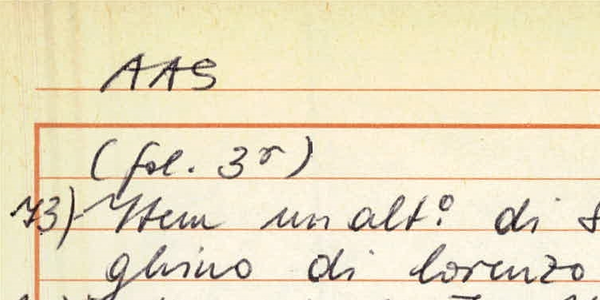 AAS
(fol. 3r)
73) Item un alt.º di
ghino di lorenzo